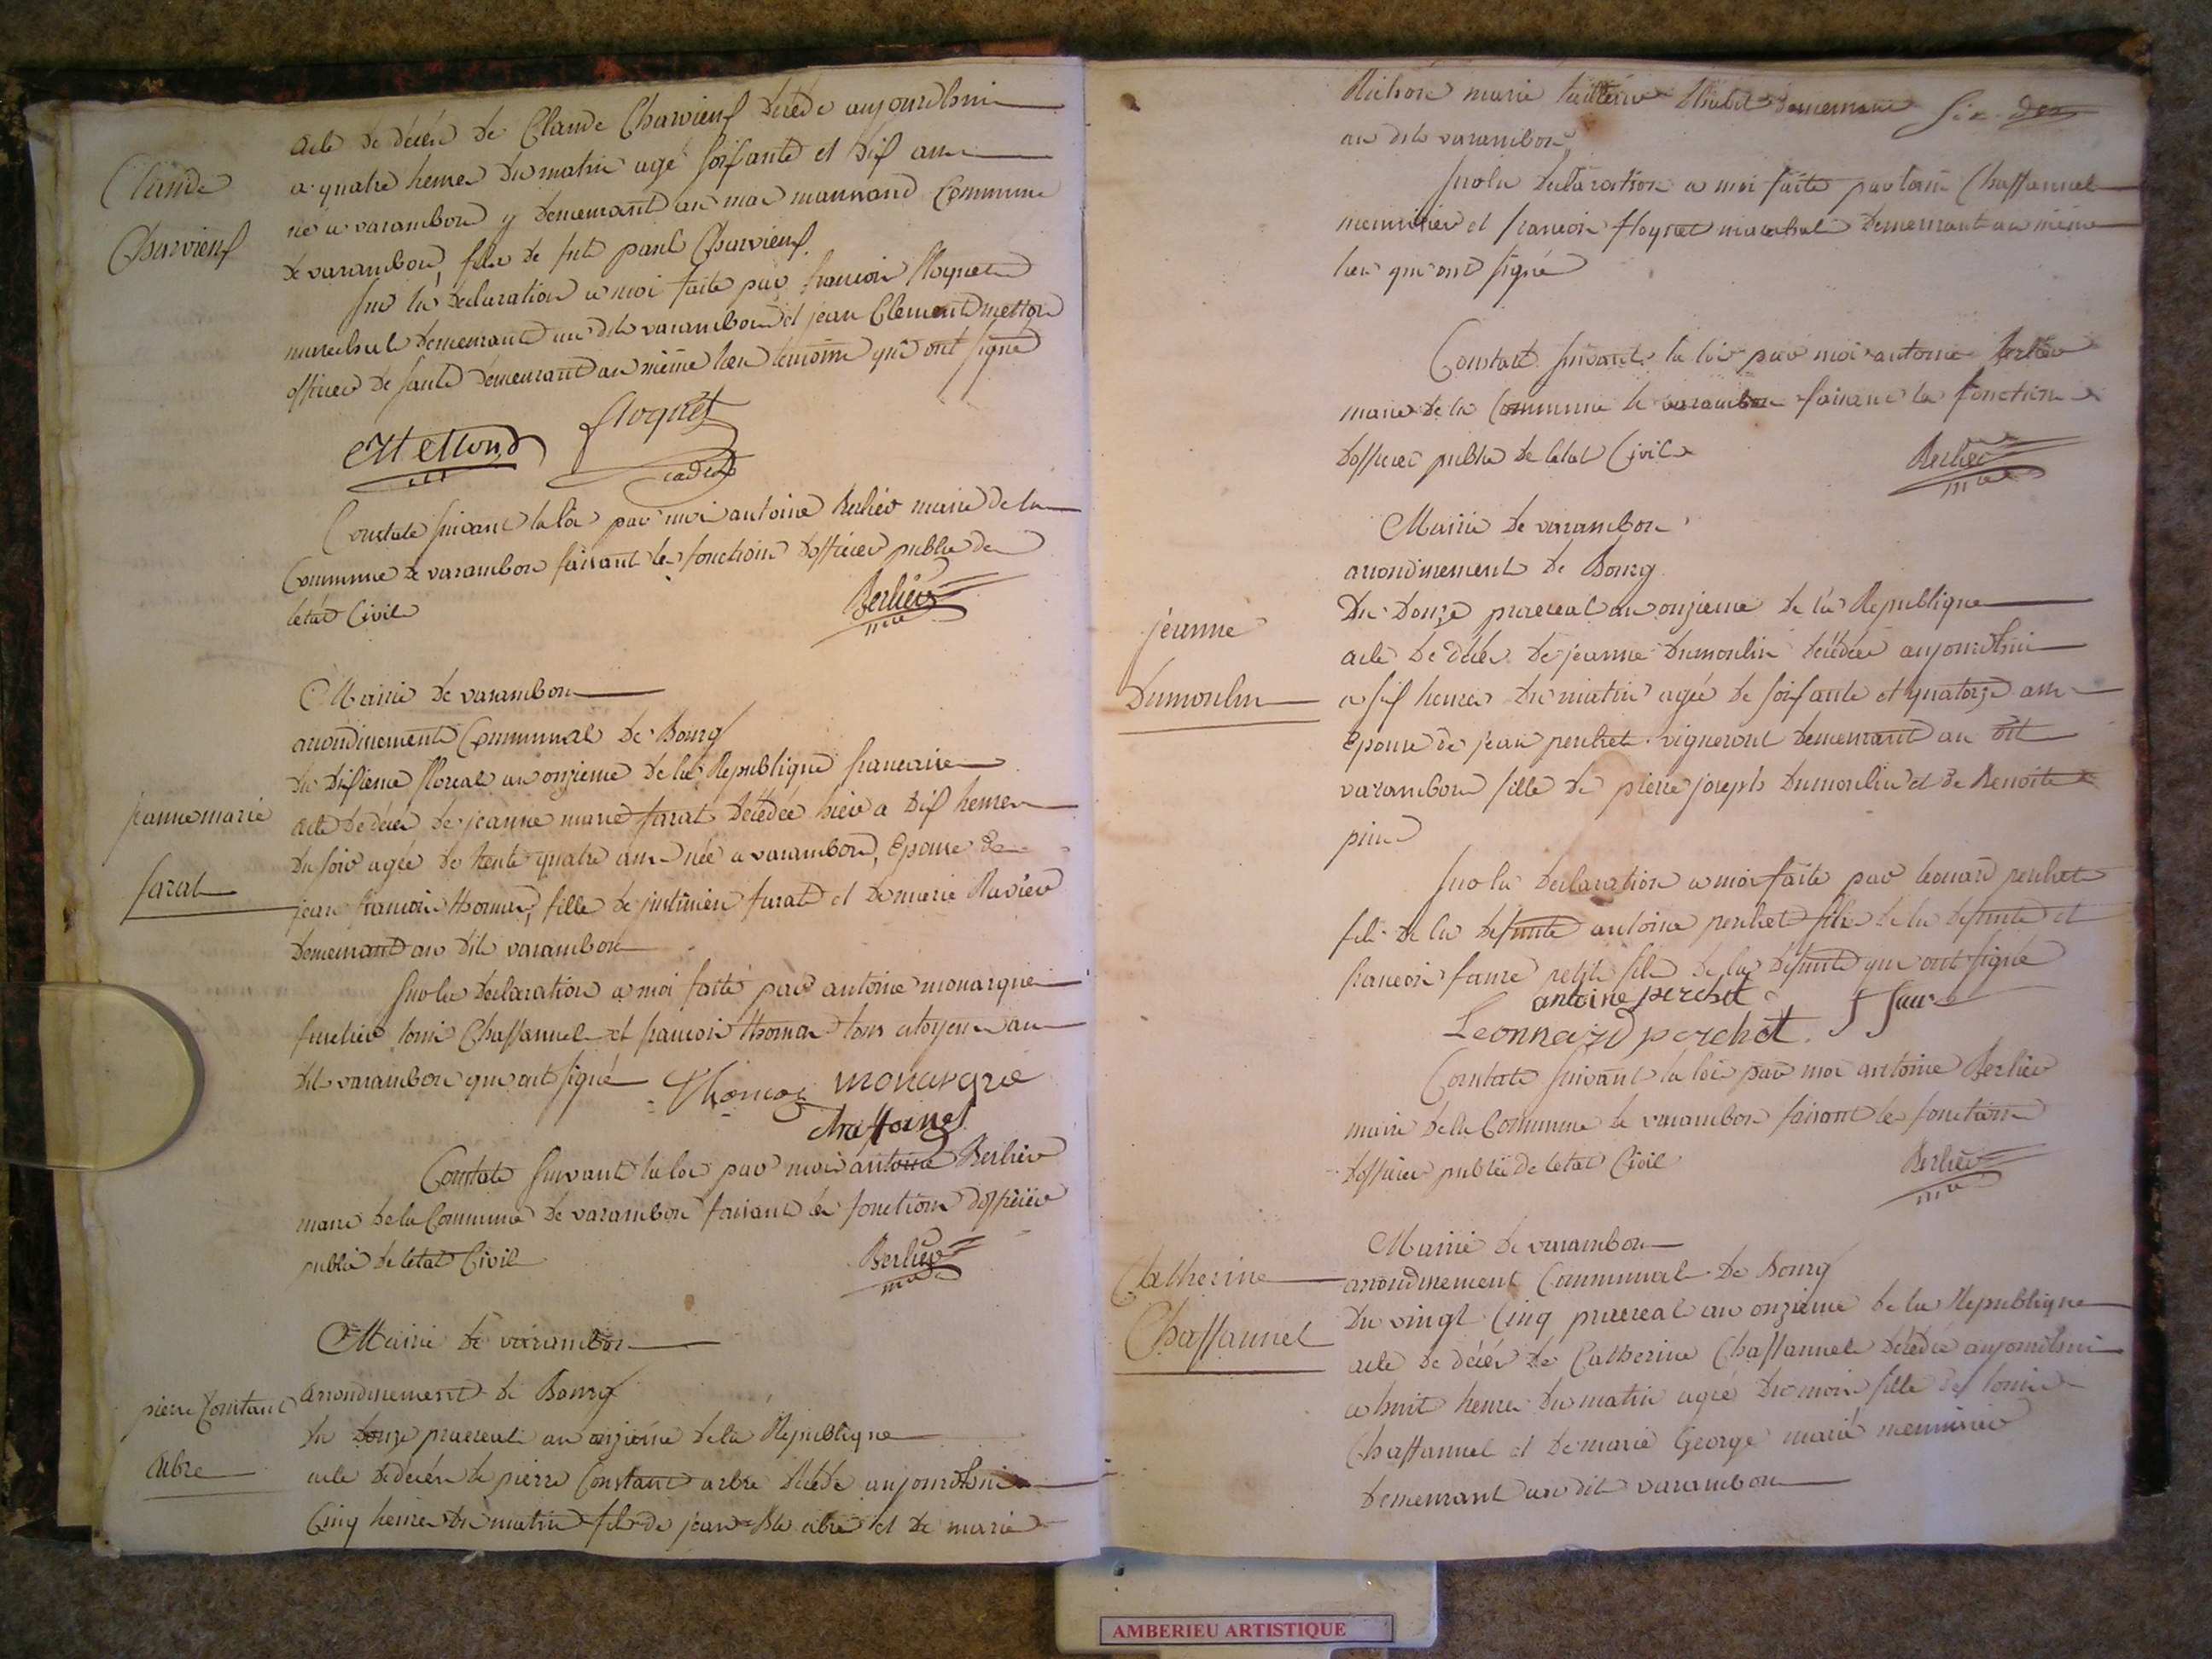 acte de décès de Claude Charvieuf décédé aujourdhui
a quatre heures du matin agé soixante et dix ans
né a varambon y demeurant au mas mannand Commune
de varambon, fils de fut paul Charvieuf.
Claude
Charvieuf
sur la declaration a moi faite par francois floquet
marechal demeurant au dit varambon et jean Clement metton
officier de santé demeurant au même lieu temoins qui ont signé
Metton floquet
cadet
Constaté suivant la loi par moi antoine Berlier maire de la
Commune de varambon faisant les fonctions dofficier public de
letat Civil
Berlier
Mairie de varambon
arrondinement Communal de Bourg
du dixieme floreal an onzieme de la Republique francaise
jeanne marie
farat
acte de décès de jeanne marie farat décédée hier a dix heures
du soir agée de trente quatre ans née a varambon, épouse de
jean francois thomas, fille de justinien farat et de marie Ravier
demeurant au dit varambon
sur la declaration a moi faite par antoine monarque
louis Chaffannel et francois thomas tous citoyens au
dit varambon qui ont signé
Thomas monarque
chaffainel
Constaté suivant la loi par moi antoine Berlier
maire de la Commune de varambon faisant les fonctions dofficier
public de letat Civil
Berlier
Mairie de varambon
arrondinement de Bourg
pierre Constant
arbre
du douze praereal an onzième de la République
acte de décès de pierre Constant arbre décédé aujourdhui
Cinq heures du matin fils de jean Bte abre et de marie
Richon marie demeurant
au dit varambon
six
sur la declaration a moi faite par louis Chaffannel
meunnier et francois floquet marechal demeurant au même
lieu qui ont signé
Constaté suivant la loi par moi antoine Berlier
maire de la Commune de varambon faisant les fonctions
dofficier public de letat Civil
Berlier
Mairie de varambon
arrondinement de Bourg
Du Douze praereal an onzieme de la Republique
jeanne
Dumoulin
acte de décès de jeanne Dumoulin décédée aujourdhui
a six heures du matin agée de soixante et quatorze ans
épouse de jean perchet vigneront demeurant au dit
varambon fille de pierre joseph Dumoulin et de Benoite
pin
sur la declaration a moi faite par leonard perchet
fils de la defunte antoine perchet fils de la defunte et
francois faure petit fils de la defunte qui ont signé
antoine perchet
Leonnard perchet. f faure
Constaté suivant la loi par moi antoine Berlier
maire de la Commune de varambon faisant les fonctions
dofficier public de letat Civil
Berlier
Mairie de varambon
arrondinement Communal de Bourg
Catherine
Chaffannel
Du vingt Cinq praereal an onzieme de la Republique
acte de décès de Catherine Chaffannel décédée aujourdhui
a huit heures du matin agée dumois fille de louis
Chaffannel et de marie George marié meunnier
demeurant au dit varambon
AMBERIEU ARTISTIQUE